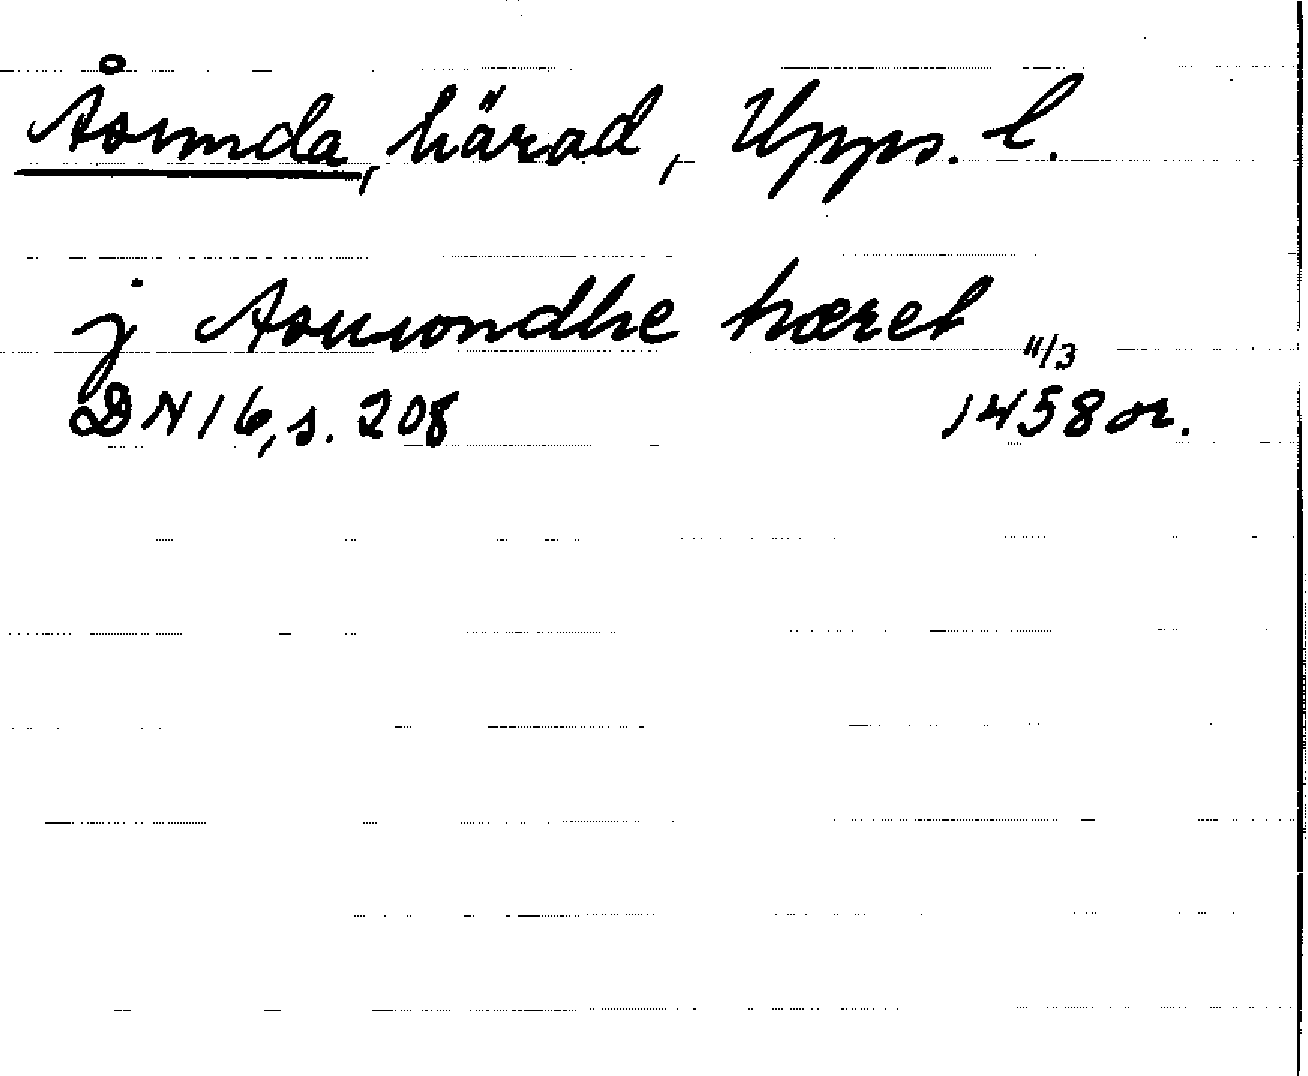 Åsunda, härad, Upps. l.
j hæret
11/3
DN 16, s. 208 1458 or.